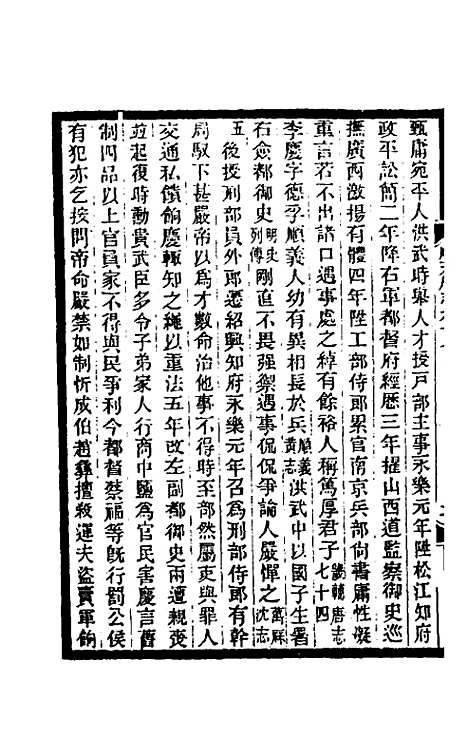 甄庸宛平人洪武時舉人才授戶部主事永樂元年陞松江知府
政平訟簡二年降右軍都督府經歷三年擢山西道監察御史巡
撫廣西激揚有體四年陞工部侍郎累官南京兵部尚書庸性凝
重言若不出諸口遇事處之綽有餘裕人稱篤厚君子七十四
李慶字德孚順義人幼有異相長於兵順義黃志洪武中以國子生署
右僉都御史明史列傳剛直不畏强禦遇事侃侃爭論人嚴憚之萬曆沈志
五後授刑部員外郎遷紹興知府永樂元年召爲刑部侍郎有幹
局馭下甚嚴帝以爲才數命治他事不得時至部然屬吏與罪人
交通私饋餉慶輒知之繩以重法五年改左副都御史兩遭親喪
並起復時勳貴武臣多令子弟家人行商中鹽為官民害慶言舊
制四品以上官員家不得與民爭利今都督蔡福等旣行罰公侯
有犯亦乞按問帝命嚴禁如制忻成伯趙彝擅殺運夫盜賣軍餉